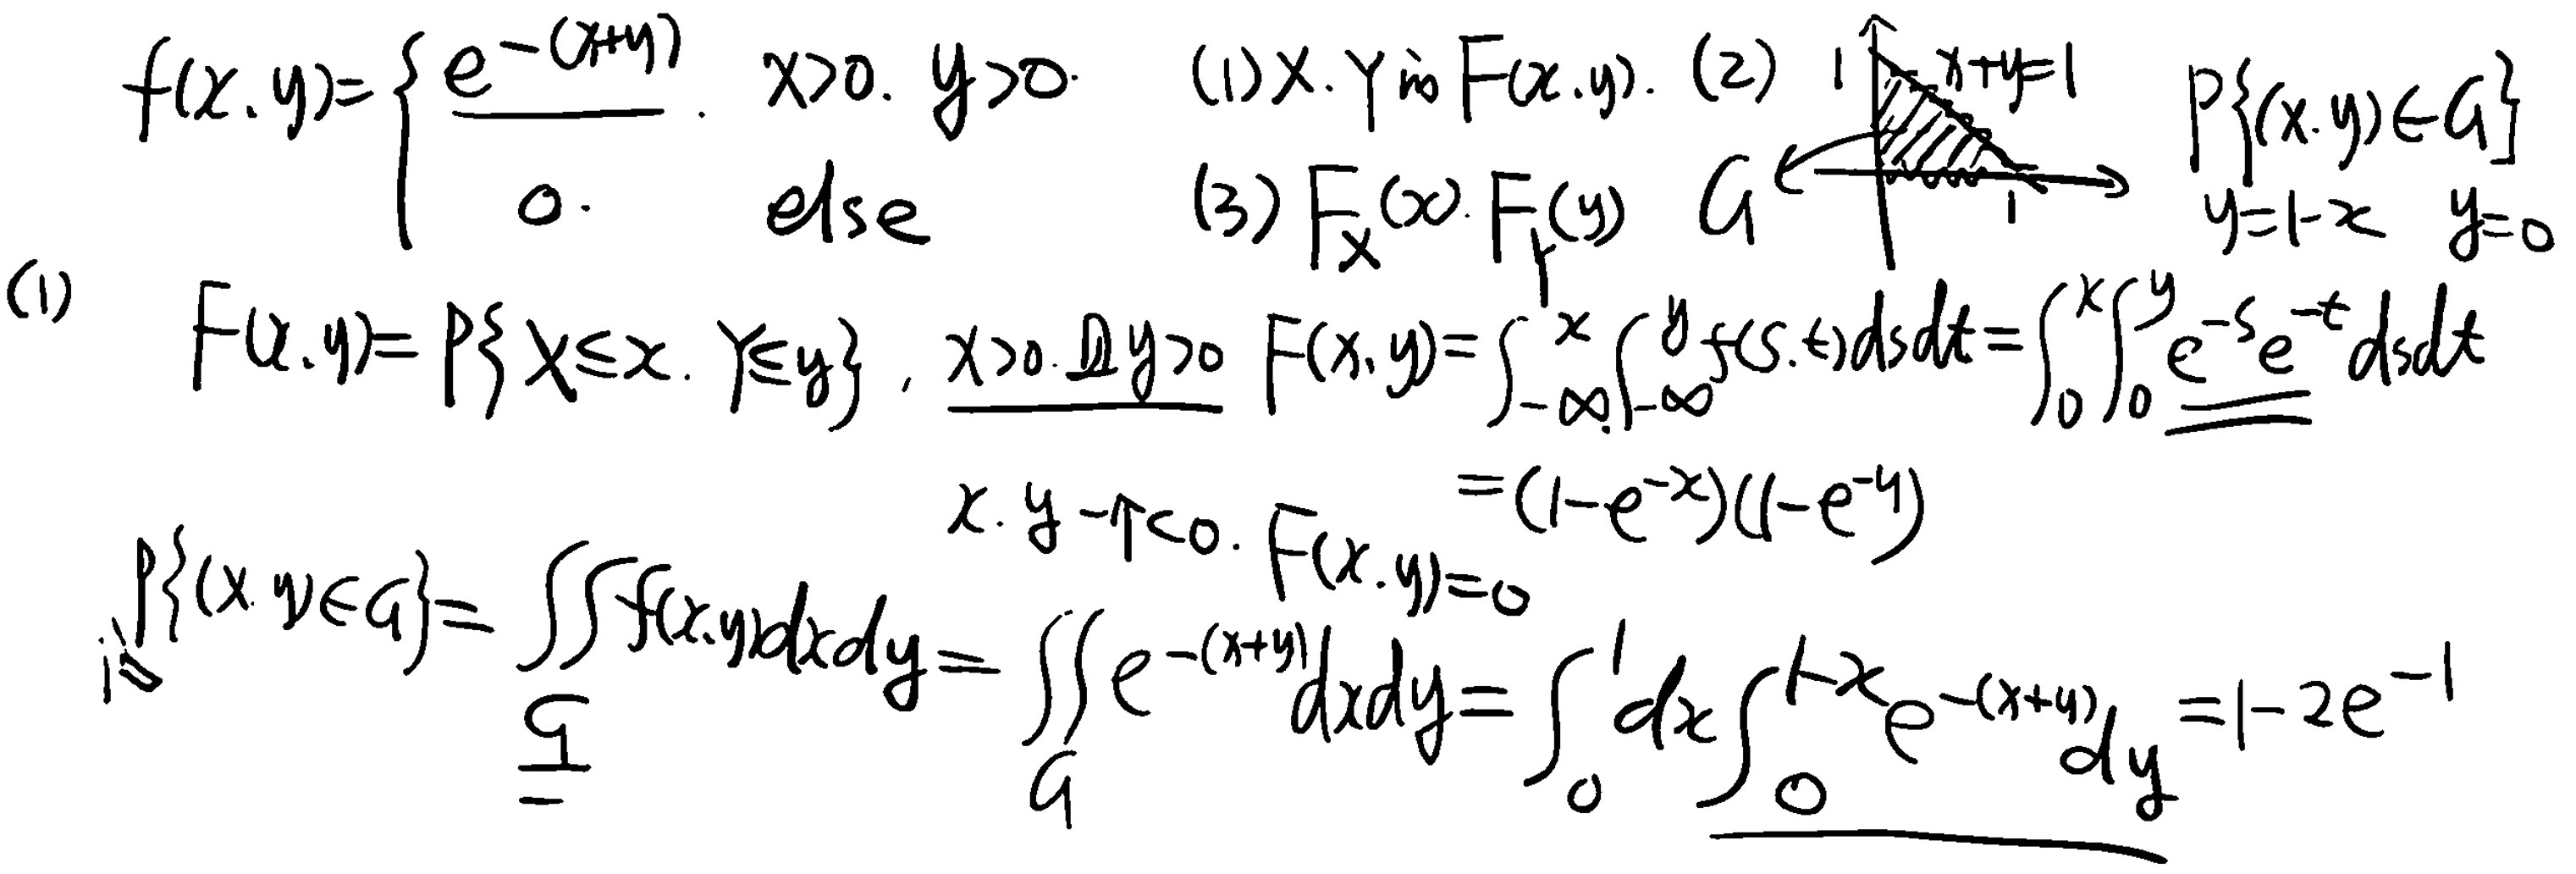 f(x.y)={ e^{-(x+y)}. x>0. y>0. (1)X.Y的F(x.y). (2) 1 x+y=1 P{(x.y)∈G}
0. else (3) F_X(x). F_Y(y) G 1 y=1-x y=0
(1) F(x.y)=P{X≤x. Y≤y}, x>0.且y>0 F(x,y)=∫_{-∞}^{x}∫_{-∞}^{y}f(s.t)dsdt=∫_0^x∫_0^y e^{-s}e^{-t}dsdt
=(1-e^{-x})(1-e^{-y})
x.y一个<0. F(x.y)=0
P{(x.y)∈G}=∬_G f(x.y)dxdy=∬_G e^{-(x+y)}dxdy=∫_0^1dx∫_0^{1-x}e^{-(x+y)}dy=1-2e^{-1}